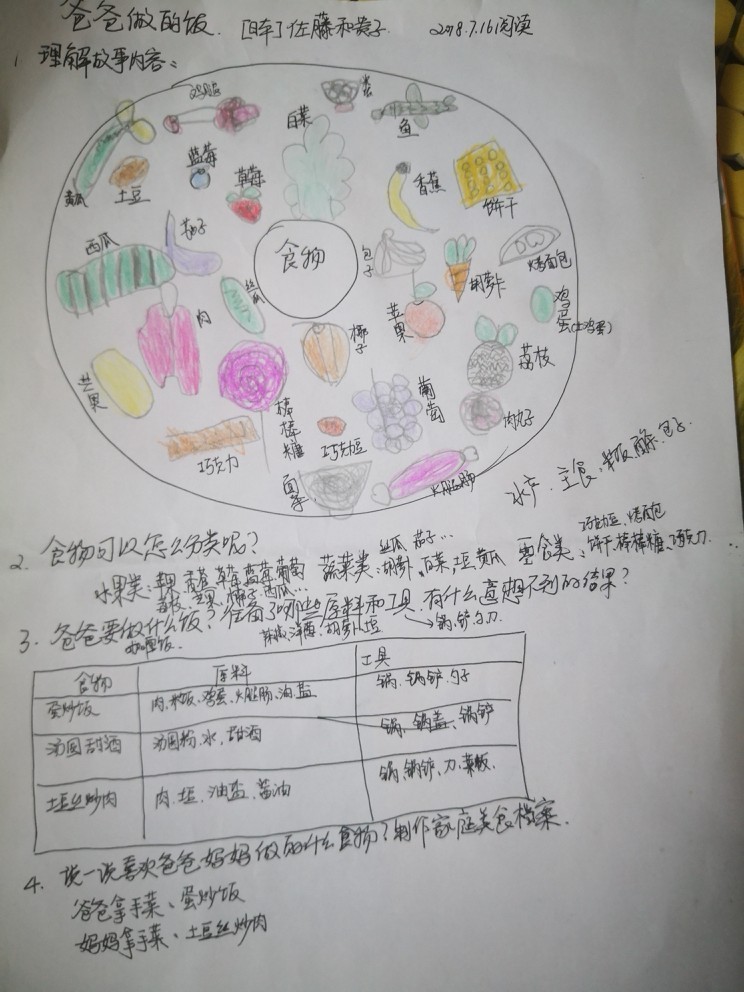 爸爸做的饭. [日本]佐藤和贵子. 2018.7.16阅读
1 理解故事内容:
鸡腿
鱼
白菜
蓝莓
草莓
黄瓜
土豆
香蕉
饼干
西瓜
茄子
食物
包子
胡萝卜
烤面包
丝瓜
肉
苹果
鸡蛋(土鸡蛋)
椰子
荔枝
芒果
葡萄
肉丸子
棒棒糖
巧克力
巧克力豆
面条
火腿肠
水产、主食、米饭、面条、包子
2. 食物可以怎么分类呢?
丝瓜 茄子…
巧克力豆、烤面包
水果类:苹果 香蕉 草莓 蓝莓 葡萄 蔬菜类:胡萝卜、白菜、土豆、黄瓜 零食类:饼干、棒棒糖、巧克力…
荔枝、芒果、椰子、西瓜…
3. 爸爸要做什么饭?准备了哪些原料和工具,有什么意想不到的结果?
咖喱饭.
辣椒、洋葱、胡萝卜、土豆
→锅、铲、勺、刀
食物 原料 工具
蛋炒饭 肉、米饭、鸡蛋、火腿肠、油、盐 锅、锅铲、勺子
汤圆甜酒 汤圆粉、水、甜酒 锅、锅盖、锅铲
土豆丝炒肉 肉、土豆、油盐、酱油 锅、锅铲、刀、菜板、
4. 说一说喜欢爸爸妈妈做的什么食物?制作家庭美食档案.
爸爸拿手菜、蛋炒饭
妈妈拿手菜、土豆丝炒肉